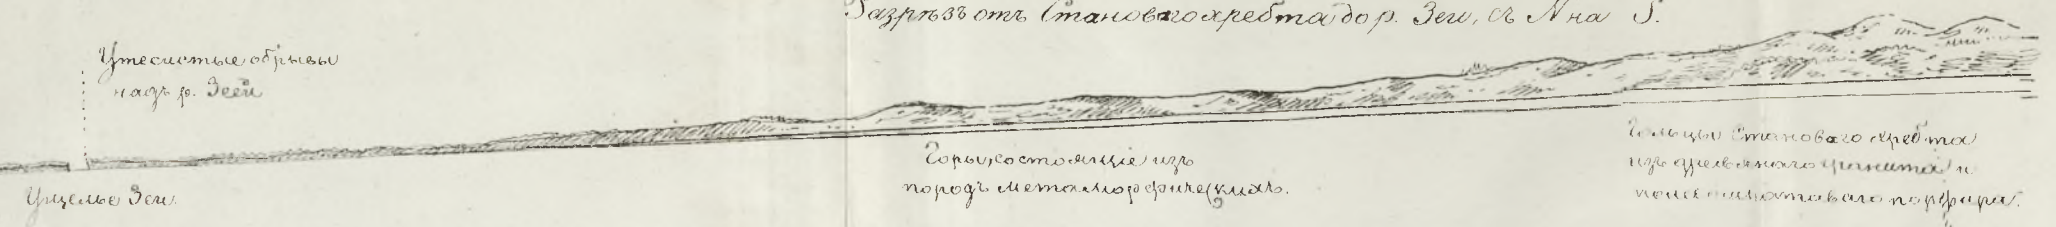 Разрѣзъ отъ Становаго хребта до р. Зеи, съ N на S.
Утесистые обрывы
надъ р. Зеей
Ущелье Зеи.
Горы, состоящіе изъ
породъ метаморфическихъ.
Гольцы Становаго хребта
изъ древняго гранита и
порфира.